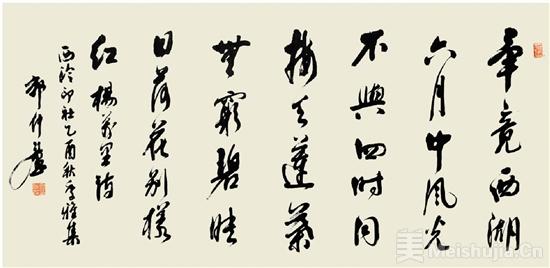 畢竟西湖
六月中風光
不與四時同
接天蓮葉
無窮碧映
日荷花別樣
紅 楊萬里詩
西泠印社乙酉秋季雅集
郭仲選
美 Meishujia.Cn